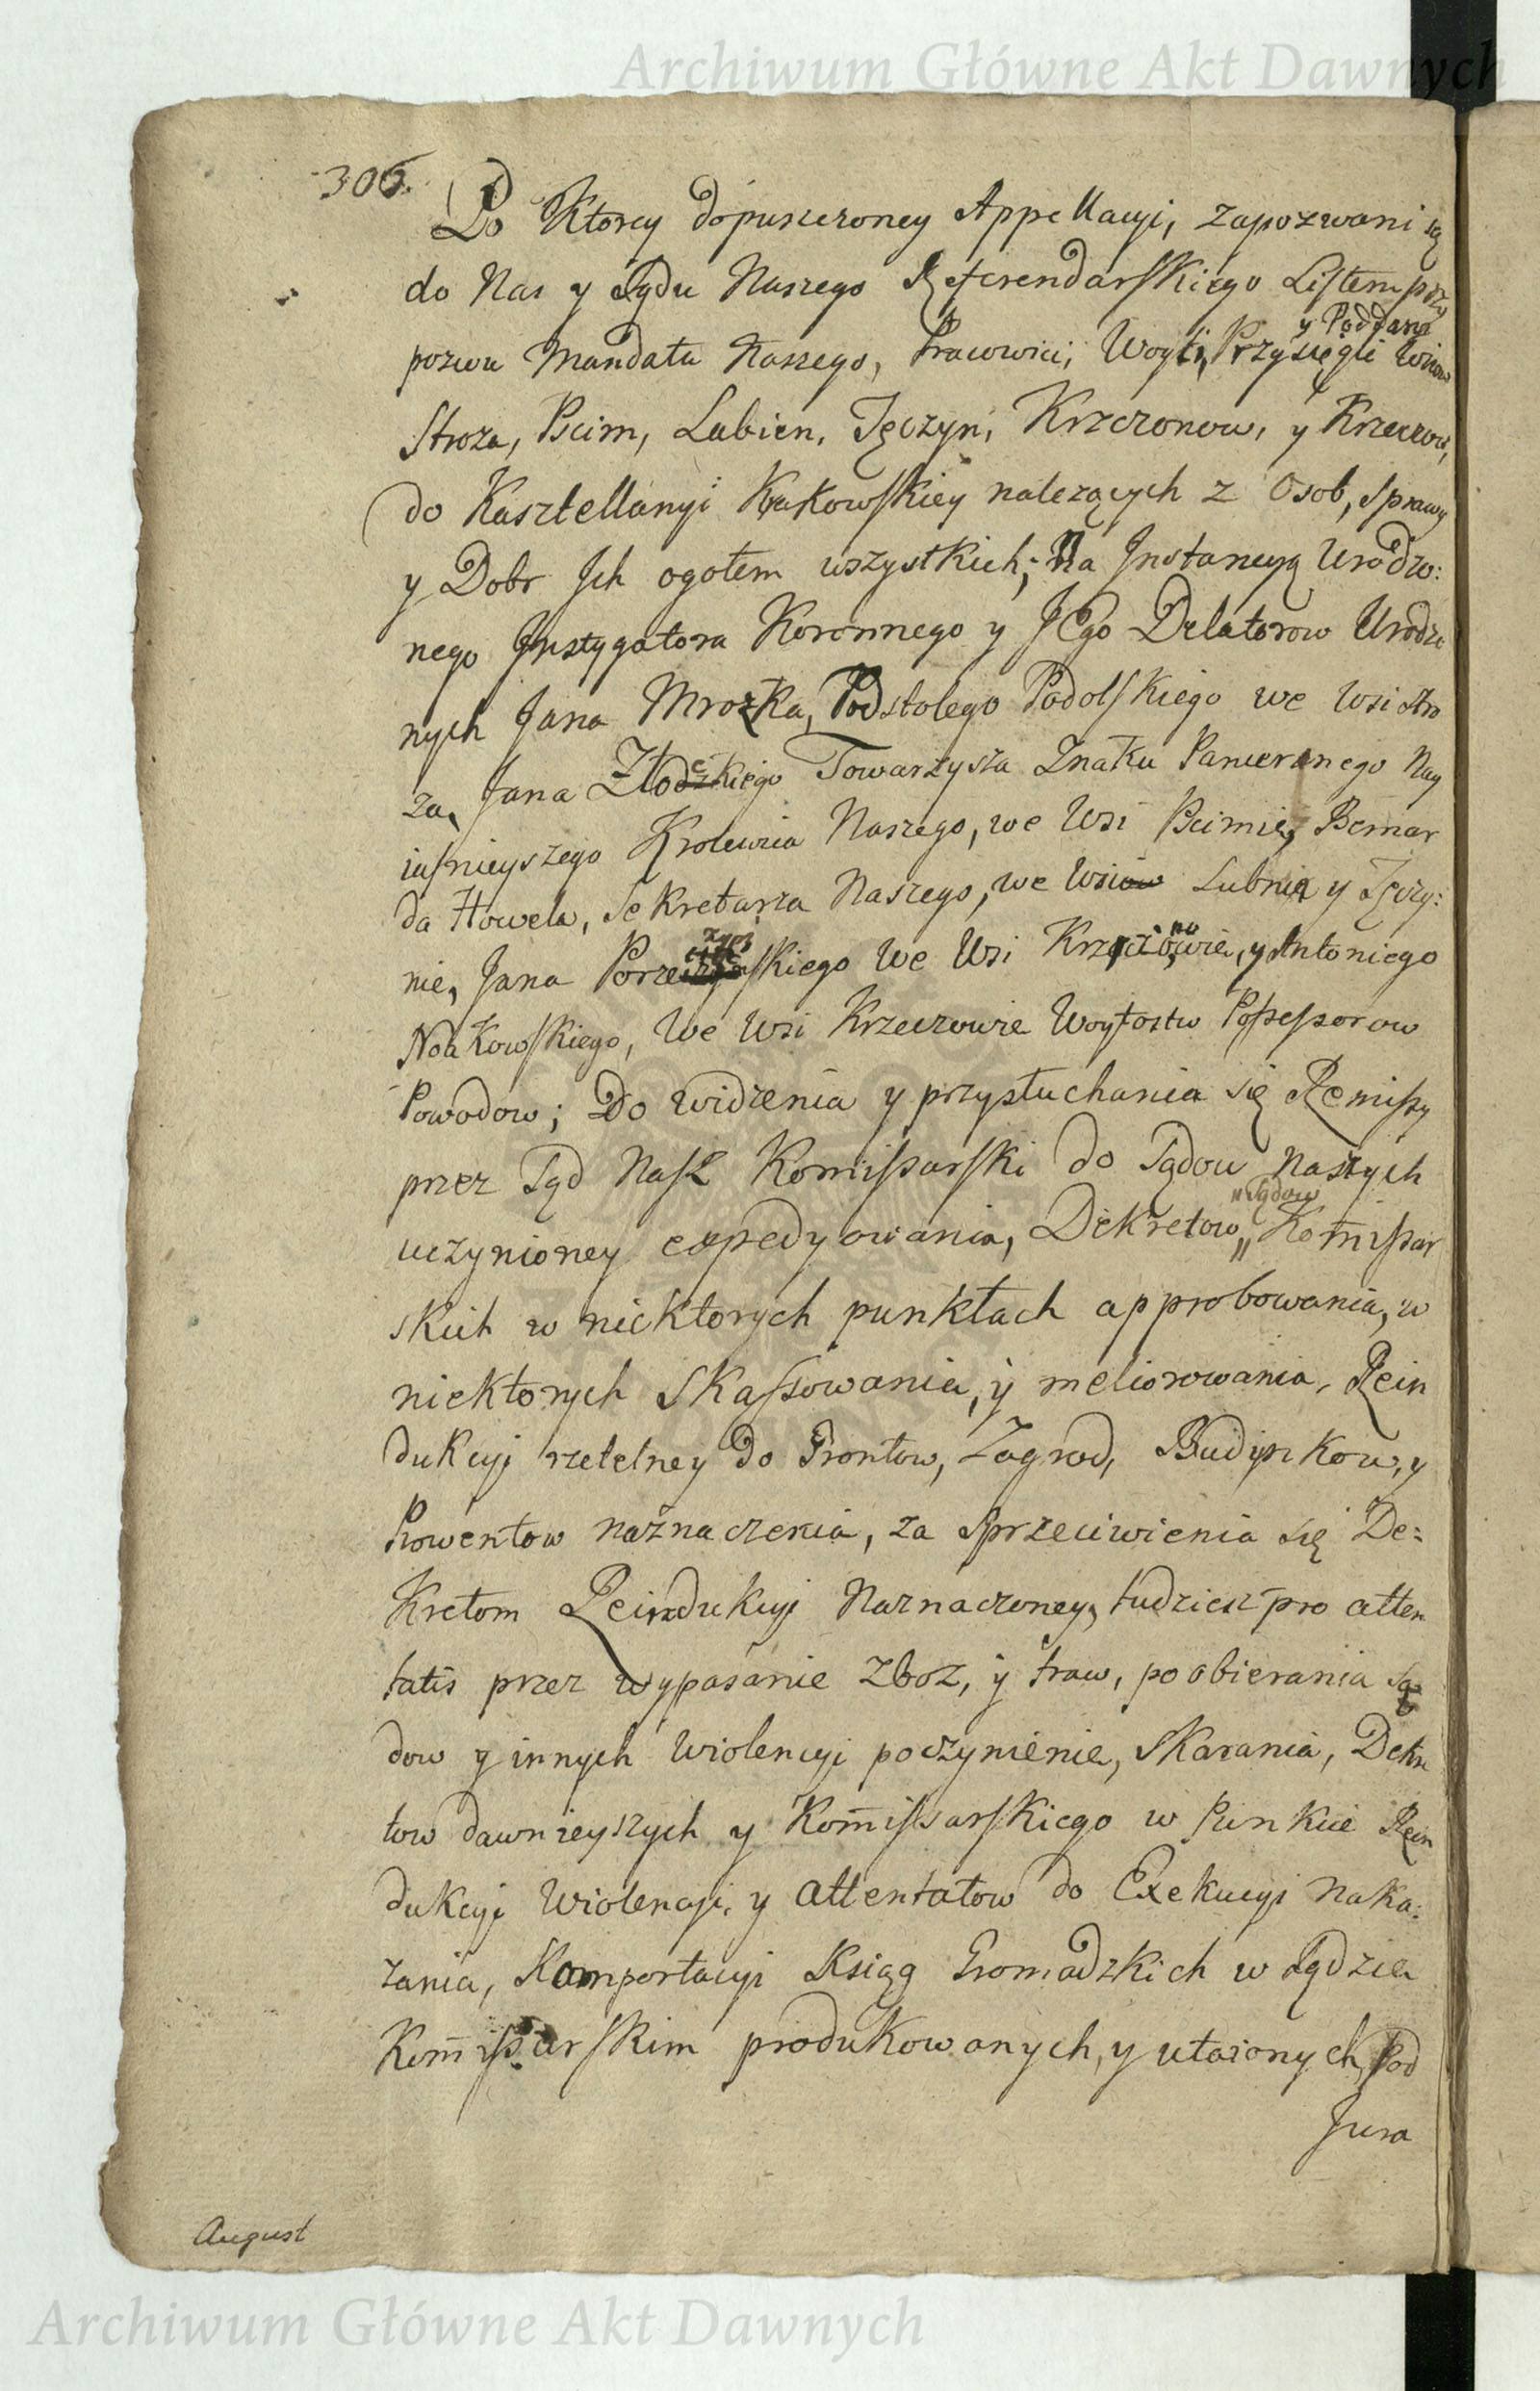 Archiwum Główne Akt Dawnych
306.
Po Ktorey dopuszczoney Appellacyi, zapozwani są
do Nas y Sądu Naszego Referendarskiego Listem przy
y Poddani
pozwu Mandatu Naszego, Pracowici, Woyti, Przysięgli Wsiow
Stroza, Pscim, Lubien, Tęczyn, Krzczonow, y Krzeczow,
do Kasztellanyi Krakowskiey nalezących z Osob, sprawy
y Dobr Jch ogołem wszystkich; Na Jnstancyą Urodzo:
nego Jnstygatora Koronnego y JEgo Delatorow Urodzo
nych Jana Mrozka, Podstolego Podolskiego we wsi Stro
za, Jana Złockiego Towarzysza Znaku Pancernego Nay
iasnieyszego Krolewica Naszego, we Wsi Pscimie, Bernar
da Howela, Sekretarza Naszego, we Wsiow Lubniu y Tęczy:
nie, Jana skiego we Wsi Krzczonowie, y Antoniego
Noakowskiego, We Wsi Krzeczowie Woytostw Possessorow
Powodow; Do widzenia y przysłuchania się Remissy
przez Sąd Nasz Komissarski do Sądow Naszych
"Sądow
uczynioney expedyowania, Dekretow" Kom̄issar
skich w niektorych punktach approbowania, w
niektorych skassowania, y meliorowania, Rein
dukcyi rzetelney do Grontow, Zagrod, Budynkow, y
Prowentow naznaczenia, za sprzeciwienia się De:
kretom Reindukcyi Naznaczoney, tudziesz pro atten
tatis przez wypasanie zboz, y traw, poobierania Są
dow y innych wiolencyi poczynienie, skarania, Dekre
tow dawnieyszych y Kom̄issarskiego w Punkcie Rein
dukcyi wiolencyi, y attentatow do Exekucyi naka:
zania, Komportacyi Ksiąg Gromadzkich w Sądzie
Kom̄issarskim produkowanych, y utaionych, Pod
Jura
August
Archiwum Główne Akt Dawnych